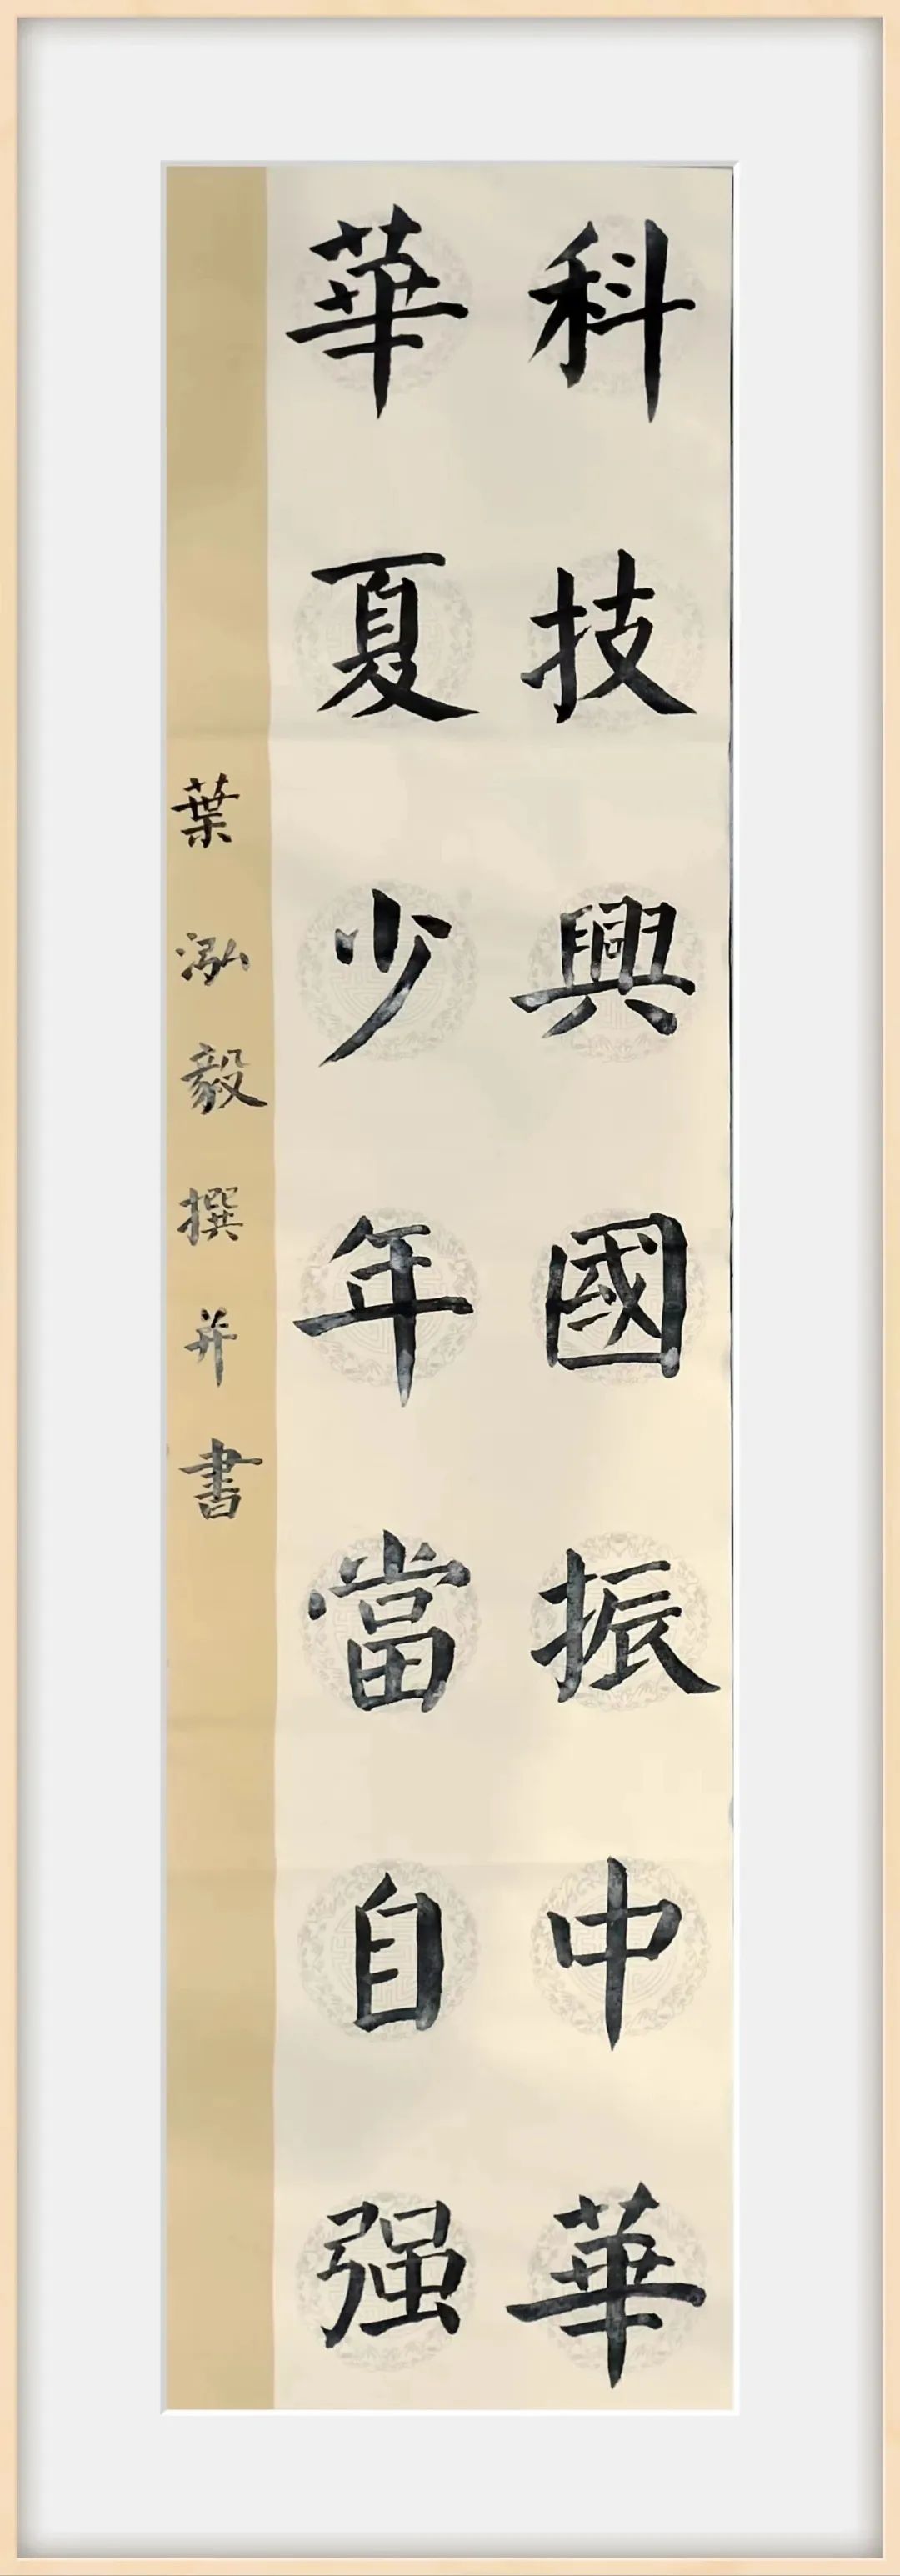 科技興國振中華
華夏少年當自强
葉泓毅撰并書